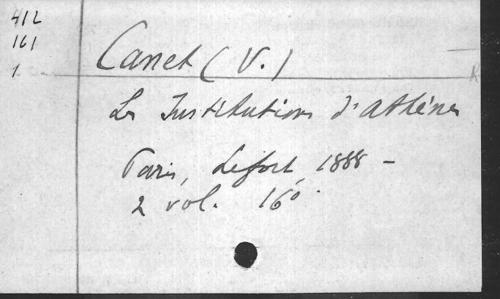 412
161
1
Canet (V.)
Les Institutions d'Athènes
Paris, Lefort, 1888 -
2 vol. 16°.